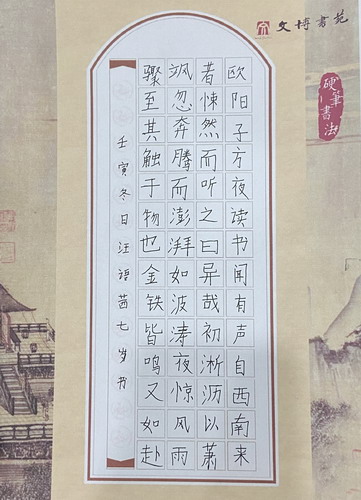 文博書苑
硬筆書法
欧阳子方夜读书闻有声自西南来
者悚然而听之曰异哉初淅沥以萧
飒忽奔腾而澎湃如波涛夜惊风雨
骤至其触于物也金铁皆鸣又如赴
壬寅冬日汪语茜七岁书